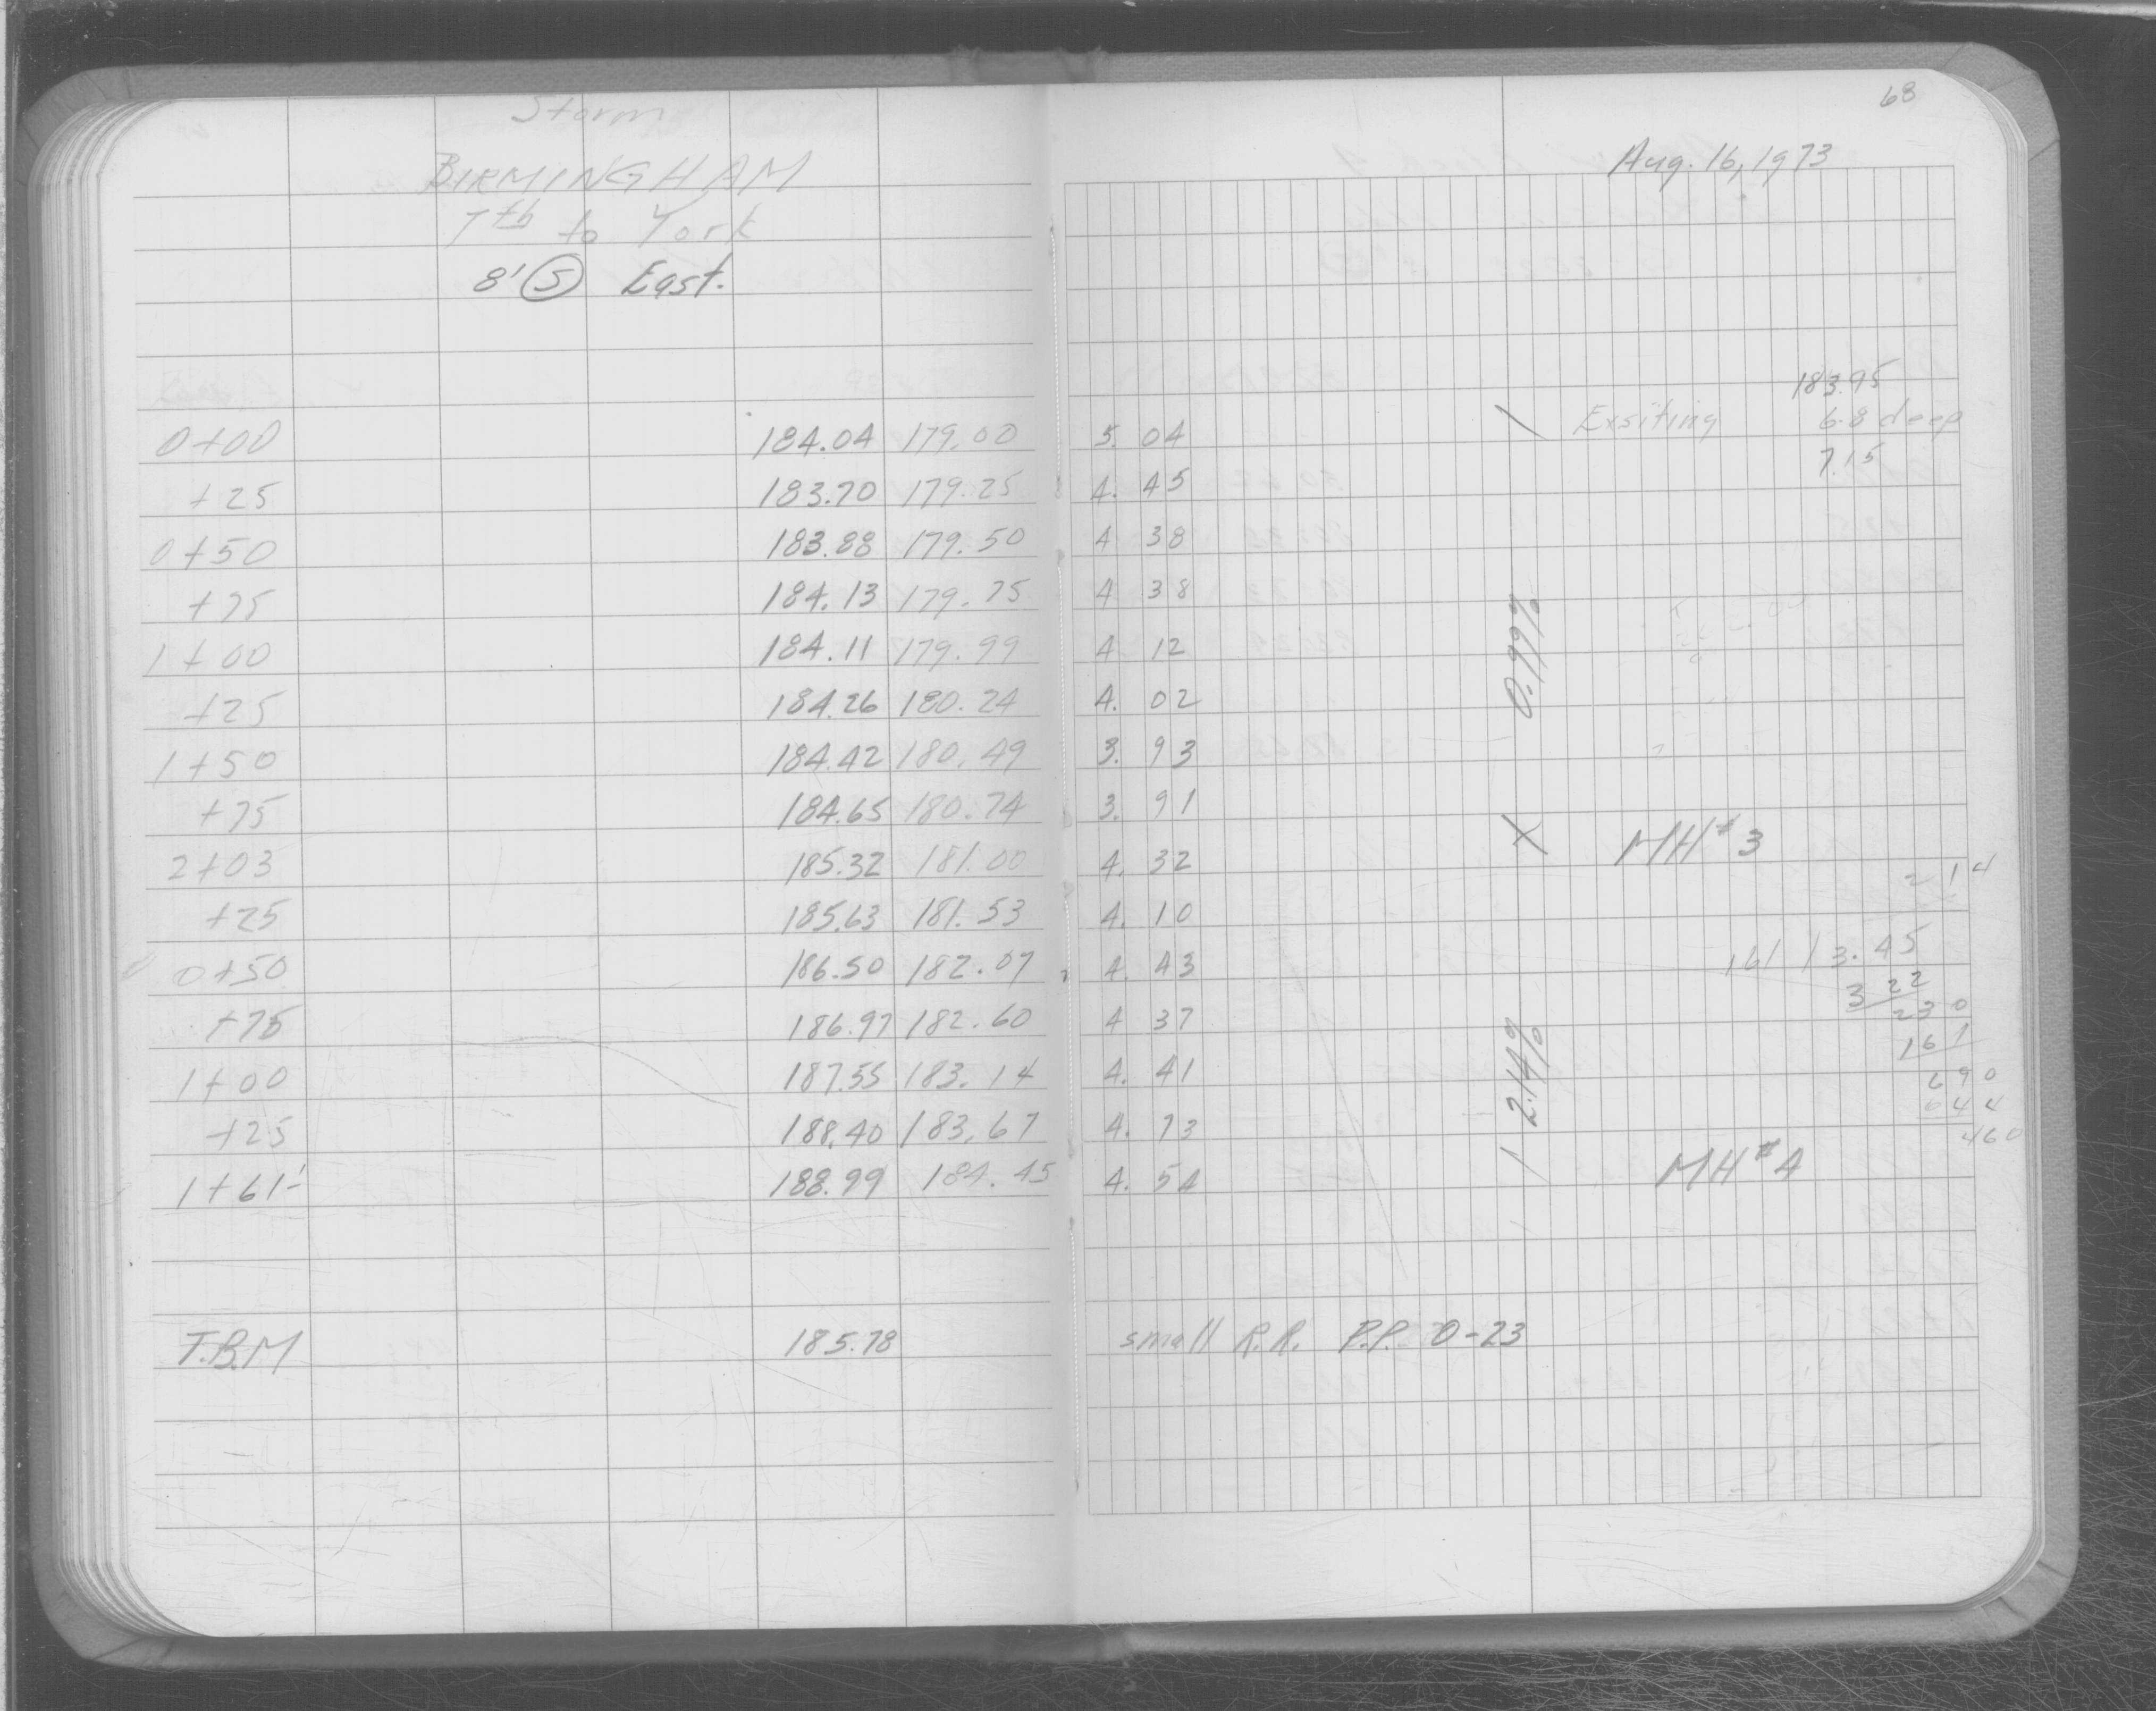 68
Storm
Aug. 16, 1973
BIRMINGHAM
7th to York
8' S East.
183.95
0+00 184.04 179.00 5.04 Exsiting 6.8 deep
7.15
+25 183.70 179.25 4.45
0+50 183.88 179.50 4 38
+75 184.13 179.75 4 38
1+00 184.11 179.99 4 12
0.99%
+25 184.26 180.24 4.02
1+50 184.42 180.49 3.93
+75 184.65 180.74 3.91
2+03 185.32 181.00 4.32 MH#3
2 1 4
+25 185.63 181.53 4.10
0+50 186.50 182.07 4.43 161 3.45
3 22
230
+75 186.97 182.60 4 37
161
1+00 187.55 183.14 4.41
690
2.14%
644
+25 188.40 183.67 4.73
460
1+61- 188.99 184.45 4.54 MH#4
T.B.M 185.78 small R.R. P.P. 0-23